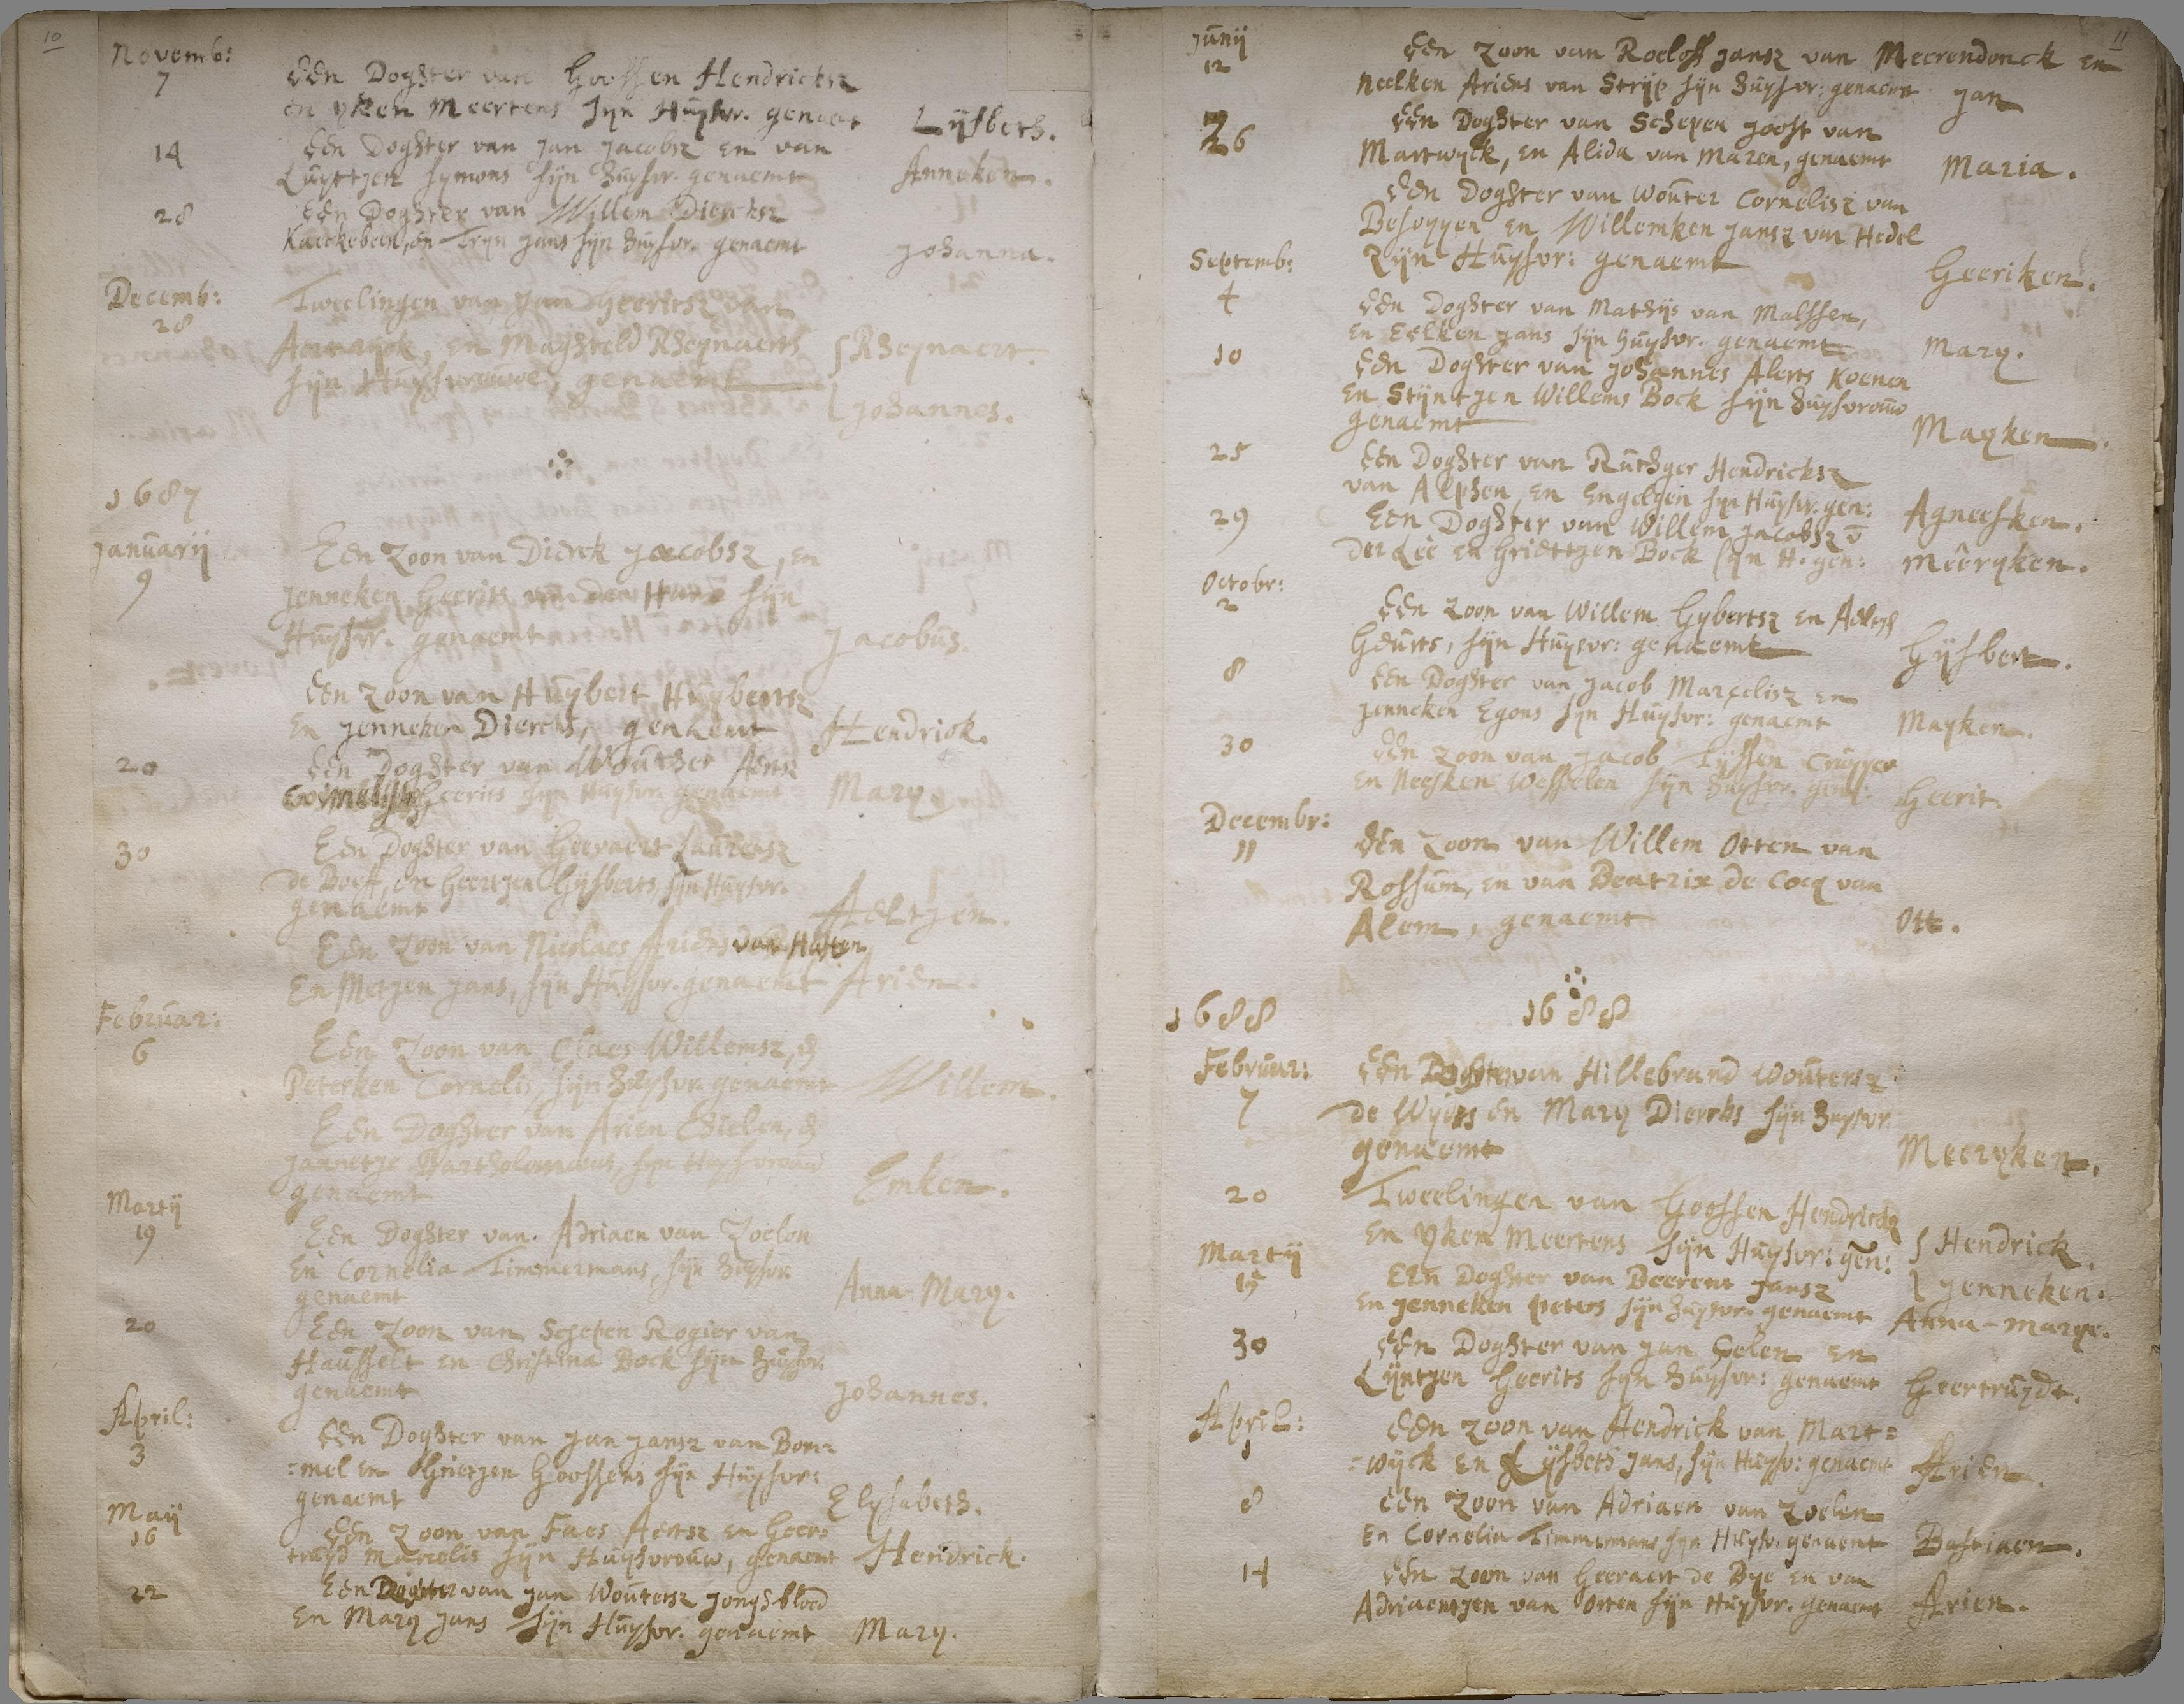 10
Novemb:
7 Een Doghter van Goossen Hendricksz
en yken Meertens sijn Huysvr. genaemt Lijsbeth.
14 Een Doghter van Jan Jacobsz en van
Luyttjen Symons sijn huysvr. genaemt Anneken.
28 Een Doghter van Willem Diercksz
Kaeckebeen, en Tryn Jans sijn huysvr. genaemt Johanna.
Decemb:
28 Tweelingen van Jan Geeritsz van
en Maghteld Rheynaerts Rheynaert.
sijn Huysvrouwe, genaemt Johannes.
1687
Januarij
9 Een Zoon van Dierck Jacobsz, en
Jenneken Geerits van den sijn
Huysvr. genaemt Jacobus.
Een Zoon van Huybert Huybertsz
en Jenneken Diercks, genaemt Hendrick.
20 Een Doghter van Wouther Aertsz
Geerits sijn Huysvr. genaemt Mary.
30 Een Doghter van Geeraert Laurensz
de en Geertjen Gijsberts, sijn Huysvr.
genaemt Aeltjen.
Een Zoon van Nicolaes Ariens van Haften
en Metjen Jans, sijn Huysvr. genaemt Arien.
Februar:
6 Een Zoon van Claes Willemsz, &
Peterken Cornelis, sijn huysvr. genaemt Willem.
Een Doghter van Arien Chielen, &
Jannetje Bartholomeus, sijn Huysvrouw
genaemt Emken.
Martij
19 Een Doghter van. Adriaen van Zoelen
En Cornelia Timmermans, sijn huysvr.
genaemt Anna-Mary.
20 Een Zoon van Schepen Rogier van
Hausselt en Christina Bock sijn huysvr.
genaemt Johannes.
April:
3 Een Doghter van Jan Jansz van Bom=
=mel en Grietjen Goossens sijn Huysvr:
genaemt Elysabeth.
Maij
16 Een Zoon van Faes Aertsz en Geer=
truyd Marcelis sijn Huysvrouw, genaemt Hendrick.
22 Een Doghter van Jan Woutersz Jongsbloed
En Mary Jans sijn Huysvr. genaemt Mary.
11
Junij
12 Een Zoon van Roeloff Jansz van Meerendonck en
Neelken Ariens van Strijp sijn huysvr: genaemt Jan
26 Een Doghter van Schepen Joost van
Martwyck, en Alida van Maren, genaemt Maria.
Een Doghter van Wouter Cornelisz van
Besoyyen en Willemken Jansz van Hedel
Zijn Huysvr: genaemt Geeriken.
Septemb:
4 Een Doghter van Mathijs van Malssen,
en Eelken Jans sijn huysvr. genaemt Mary.
10 Een Doghter van Johannes Alerts Koenen
en Stijntjen Willems Bock sijn huysvrouw
genaemt Mayken.
25 Een Doghter van Ruthger Hendricksz
van Alphen, en Engelgen sijn Huysvr. gen: Agneesken.
29 Een Doghter van Willem Jacobsz v
der Lee en Griettjen Bock sijn H. gen: Meeryken.
Octobr:
2 Een Zoon van Willem Gybertsz en Aeltje
Geurts, sijn Huysvr: genaemt Gijsbert.
8 Een Doghter van Jacob Marcelisz en
Jenneken Egons sijn Huysvr: genaemt Mayken.
30 Een Zoon van Jacob Tyssen Cruyper
en Neesken Wesselen sijn huysvr. gen: Geerit.
Decembr:
11 Een Zoon van Willem Otten van
Rossum, en van Beatrix de Cocq van
Alem, genaemt Ott.
1688 1688
Februar:
7 Een Doghter van Hillebrand Woutersz
de Wijers en Mary Diercks sijn huysvr.
genaemt Meeryken.
20 Tweelingen van Goossen Hendricksz
en Yken Meertens sijn Huysvr: gen: Hendrick
Martij Jenneken.
15 Een Doghter van Beerent Jansz
en Jenneken Peters sijn huysvr. genaemt Anna-Marye.
30 Een Doghter van Jan Gelen en
Lijntjen Geerits sijn huysvr: genaemt Geertruydt.
April:
1 Een Zoon van Hendrick van Mart=
=wijck en Lijsbeth Jans, sijn Huysv: genaemt Arien.
8 Een Zoon van Adriaen van Zoelen
en Cornelia Timmermans sijn Huysv. genaemt Bastiaen.
14 Een Zoon van Geeraert de Bye en van
Adriaentjen van Otten sijn Huysvr. genaemt Arien.